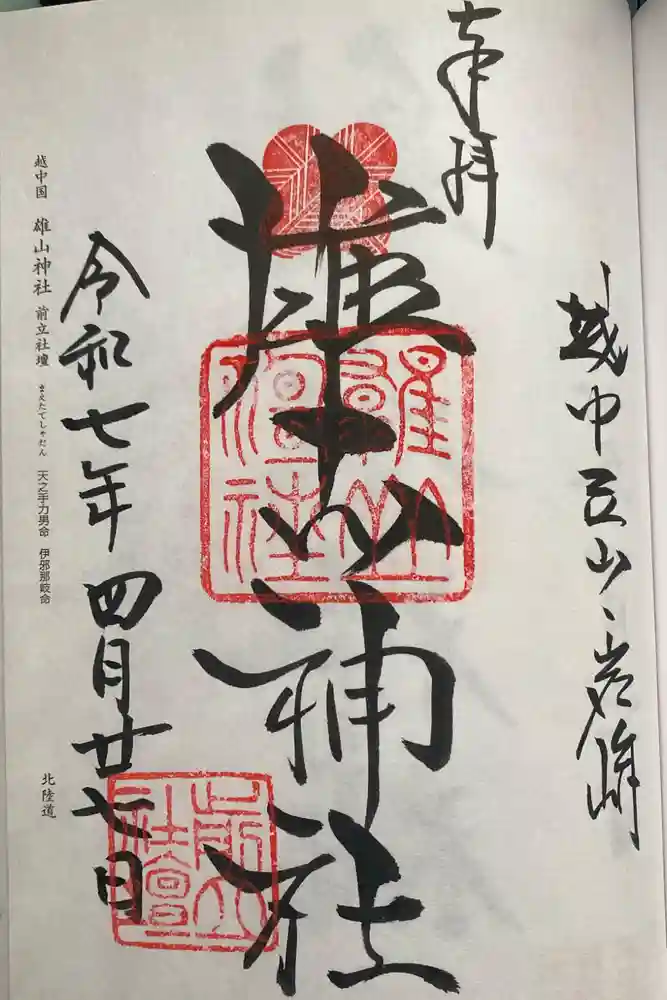 奉拝
越中立山岩峅
雄山神社
雄山神社
前立社壇
令和七年四月廿七日
越中国 雄山神社 前立社壇 まえたてしゃだん 天之手力男命 伊邪那岐命
北陸道